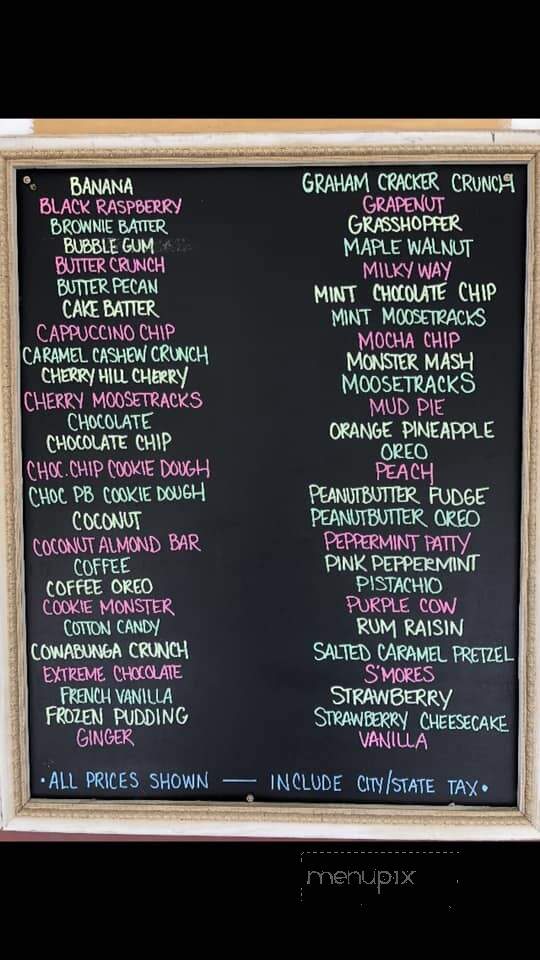 BANANA
BLACK RASPBERRY
BROWNIE BATTER
BUBBLE GUM
BUTTER CRUNCH
BUTTER PECAN
CAKE BATTER
CAPPUCCINO CHIP
CARAMEL CASHEW CRUNCH
CHERRY HILL CHERRY
CHERRY MOOSETRACKS
CHOCOLATE
CHOCOLATE CHIP
CHOC.CHIP COOKIE DOUGH
CHOC PB COOKIE DOUGH
COCONUT
COCONUT ALMOND BAR
COFFEE
COFFEE OREO
COOKIE MONSTER
COTTON CANDY
COWABUNGA CRUNCH
EXTREME CHOCOLATE
FRENCH VANILLA
FROZEN PUDDING
GINGER
GRAHAM CRACKER CRUNCH
GRAPENUT
GRASSHOPPER
MAPLE WALNUT
MILKY WAY
MINT CHOCOLATE CHIP
MINT MOOSETRACKS
MOCHA CHIP
MONSTER MASH
MOOSETRACKS
MUD PIE
ORANGE PINEAPPLE
OREO
PEACH
PEANUTBUTTER FUDGE
PEANUTBUTTER OREO
PEPPERMINT PATTY
PINK PEPPERMINT
PISTACHIO
PURPLE COW
RUM RAISIN
SALTED CARAMEL PRETZEL
S'MORES
STRAWBERRY
STRAWBERRY CHEESECAKE
VANILLA
•ALL PRICES SHOWN — INCLUDE CITY/STATE TAX•
menupix